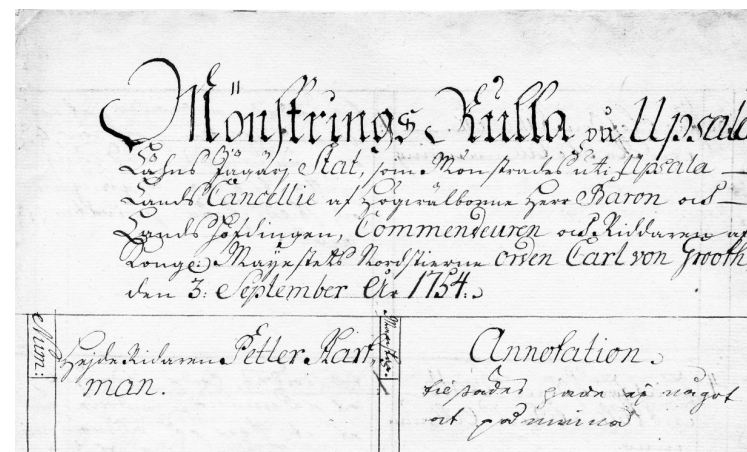 Mönstrings Rulla på Upsala
Lähns Jägårj Stat, som Mönstrades uti Upsala
Lands Cancellie af Högvälborne Herr Baron och
Landshöfdingen, Commendeuren och Riddaren af
Kongl: Mayestets Nordstierne Orden Carl von Grooth
den 3: September Åhr 1754.
Num:
HejdeRidaren Petter Hart,
man.
Annotation.
något